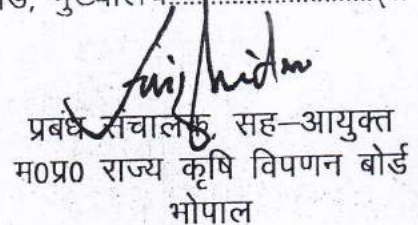 प्रबंध संचालक, सह–आयुक्त
म0प्र0 राज्य कृषि विपणन बोर्ड
भोपाल